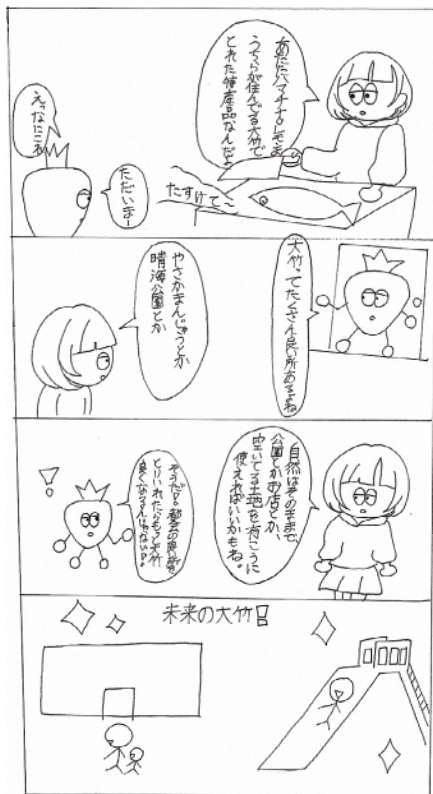 うちらが住んでる大竹で
とれた特産品なんだよ
ただいまー
たすけて
えっなにこれ
大竹ってたくさん良い所あるよね
やさかまんじゅうとか
晴海公園とか
自然はそのままで、
公園とかお店とか、
空いてる土地を有こうに
使えればいいかもね。
そうだ!!都会の良い所を
とりいれたらもっと大竹
良くなるんじゃない!?
未来の大竹!!